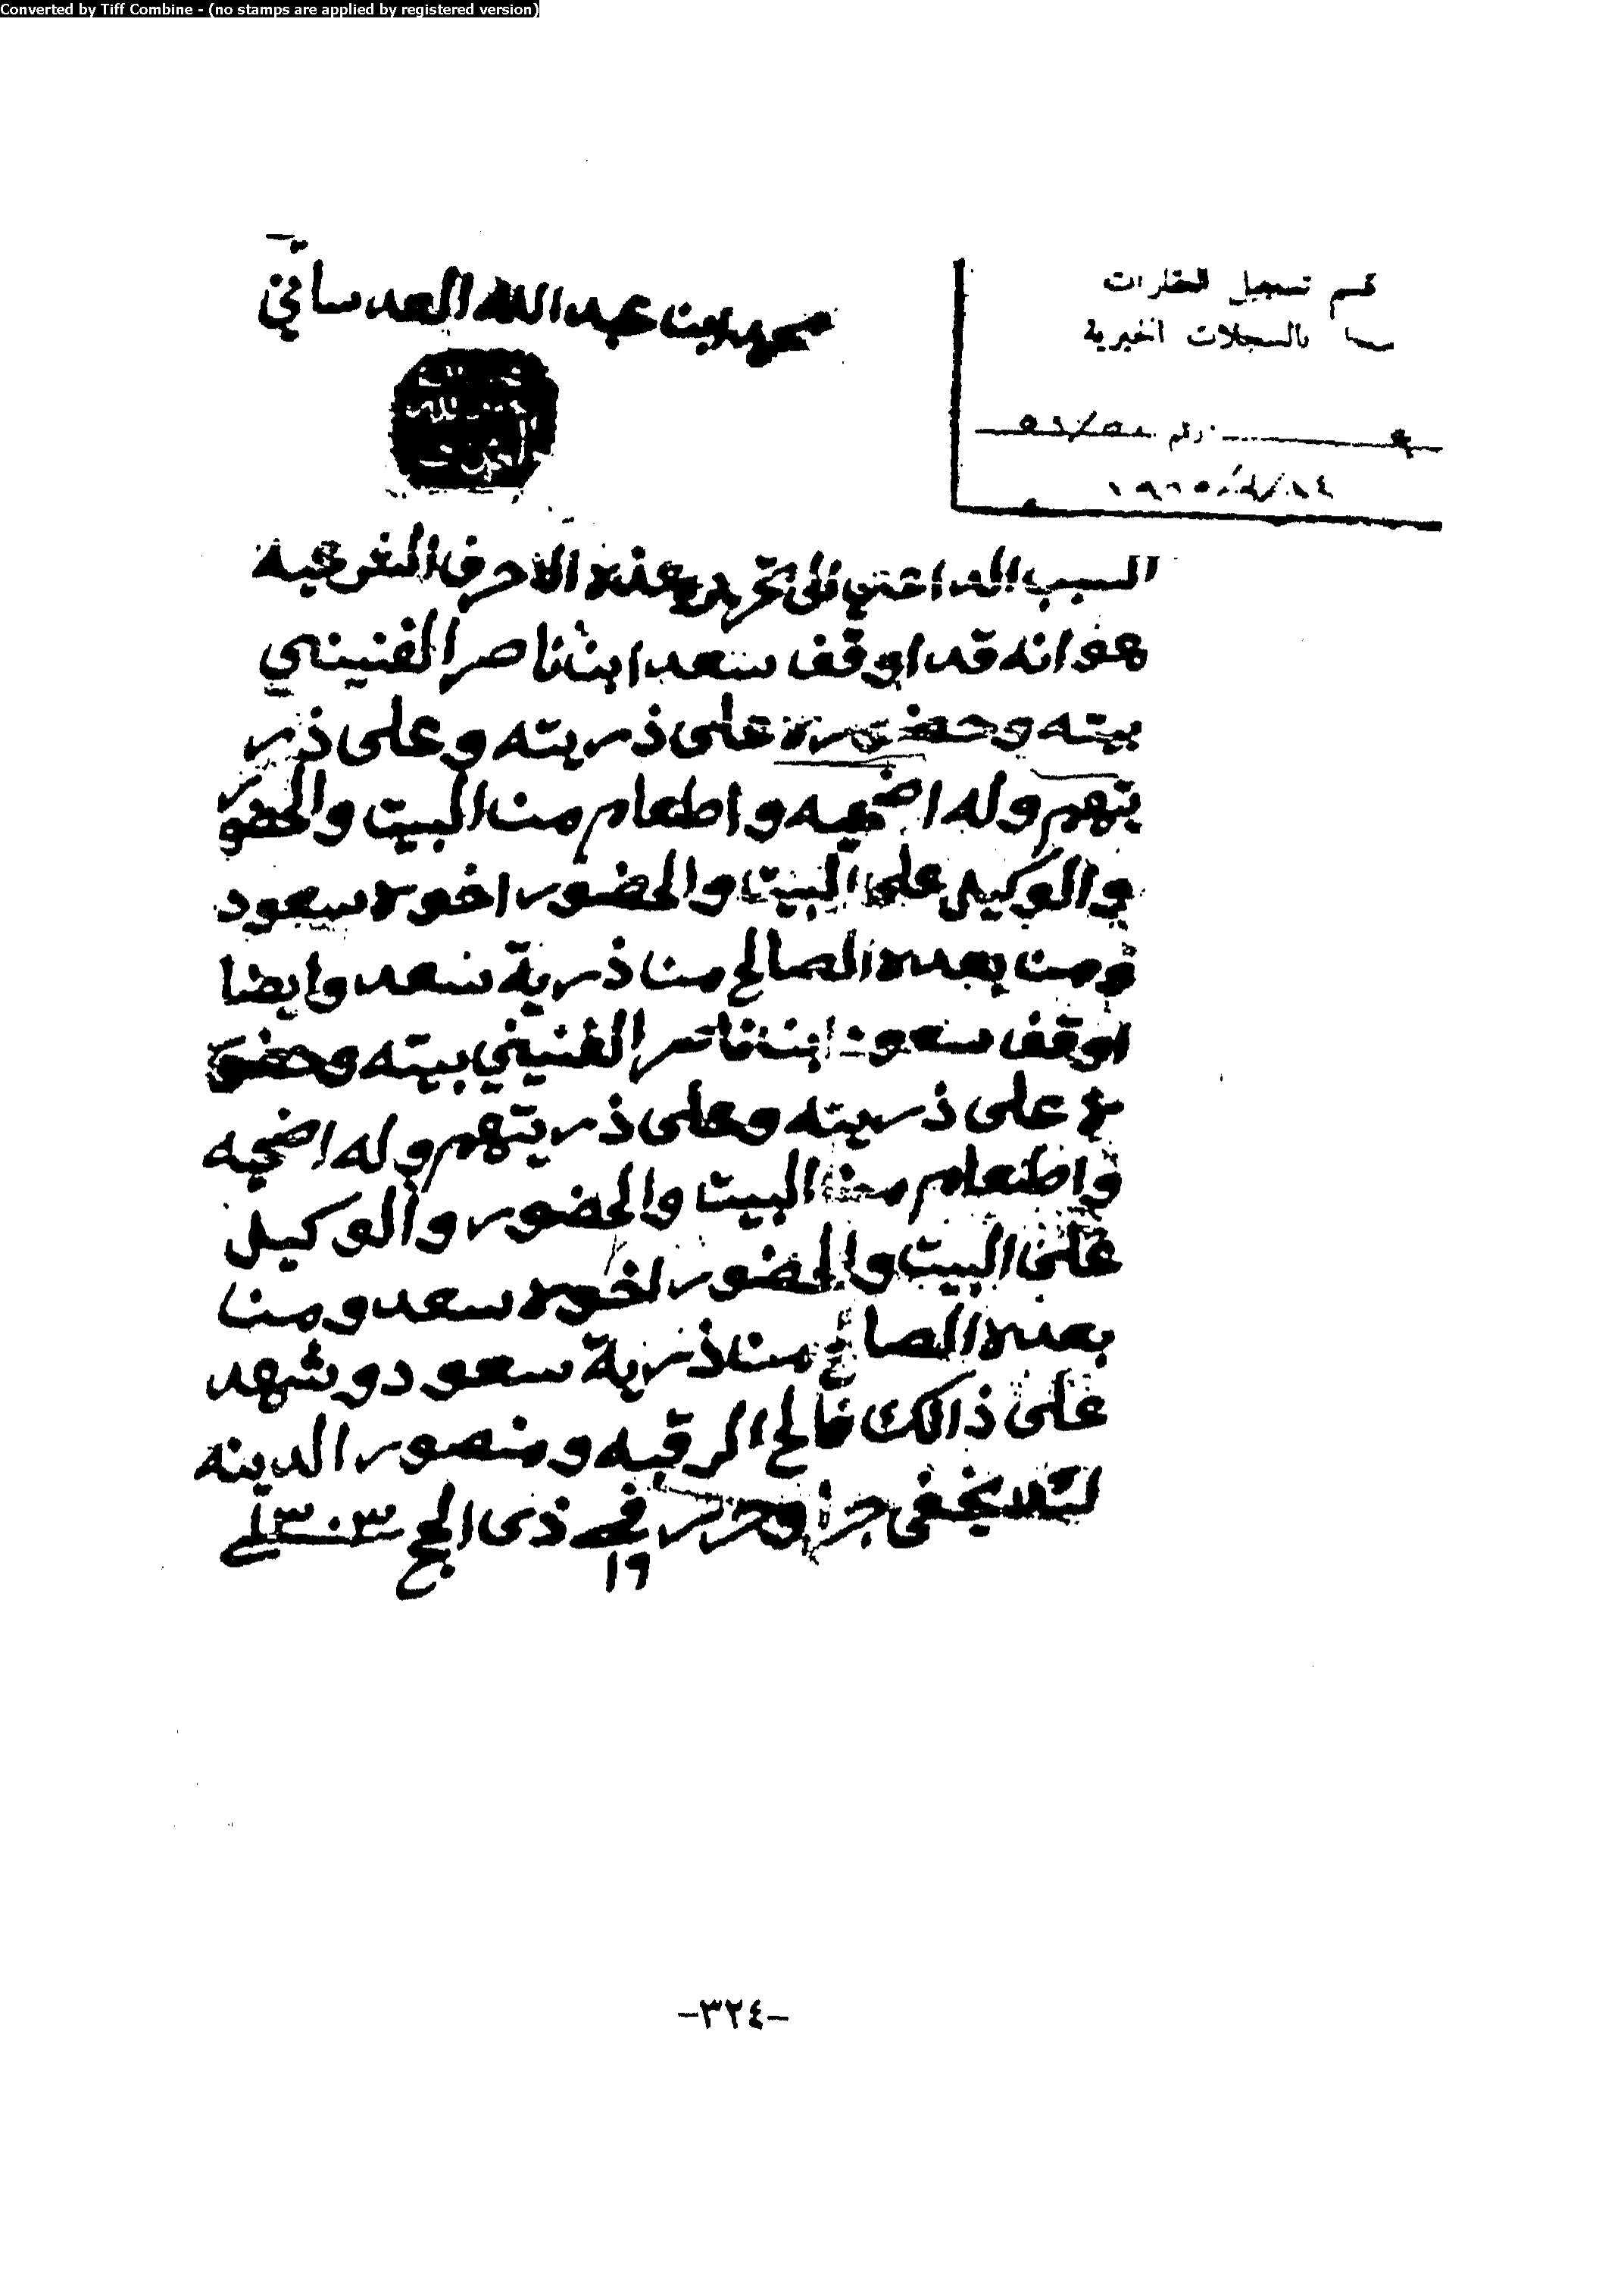 Converted by Tiff Combine - (no stamps are applied by registered version)
قسم تسجيل العقارات
بالسجلات الخيرية
رقم
محمد ابن عبدالله العدساني
السبب الداعي الى تحرير هذه الاحرف الشرعيه
هو انه قد اوقف سعد ابن ناصر الفنيني
بيته وحضوره على ذريته وعلى ذر
يتهم وله اضحيه واطعام من البيت والحضور
والوكيل على البيت والحضور اخوه سعود
ومن بعده الصالح من ذرية سعد وايضا
اوقف سعود ابن ناصر الفنيني بيته وحضو
ره على ذريته وعلى ذريتهم وله اضحيه
واطعام من البيت والحضور والوكيل
على البيت والحضور اخوه سعد ومن
بعده الصالح من ذرية سعود وشهد
على ذالك فالح الرقبه ومنصور الدينه
لئلا يخفى جرا وحرر في ذى الحج ١٣٠٣
١٩
-٣٢٤-